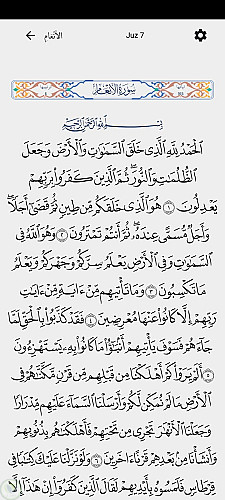 الأنعام Juz 7
سُورَةُ الأَنْعَامِ
بِسْمِ اللَّهِ الرَّحْمَٰنِ الرَّحِيمِ
ٱلْحَمْدُ لِلَّهِ ٱلَّذِى خَلَقَ ٱلسَّمَٰوَٰتِ وَٱلْأَرْضَ وَجَعَلَ
ٱلظُّلُمَٰتِ وَٱلنُّورَ ۖ ثُمَّ ٱلَّذِينَ كَفَرُوا۟ بِرَبِّهِمْ
يَعْدِلُونَ ١ هُوَ ٱلَّذِى خَلَقَكُم مِّن طِينٍ ثُمَّ قَضَىٰٓ أَجَلًا ۖ
وَأَجَلٌ مُّسَمًّى عِندَهُۥ ۖ ثُمَّ أَنتُمْ تَمْتَرُونَ ٢ وَهُوَ ٱللَّهُ فِى
ٱلسَّمَٰوَٰتِ وَفِى ٱلْأَرْضِ ۖ يَعْلَمُ سِرَّكُمْ وَجَهْرَكُمْ وَيَعْلَمُ
مَا تَكْسِبُونَ ٣ وَمَا تَأْتِيهِم مِّنْ ءَايَةٍ مِّنْ ءَايَٰتِ
رَبِّهِمْ إِلَّا كَانُوا۟ عَنْهَا مُعْرِضِينَ ٤ فَقَدْ كَذَّبُوا۟ بِٱلْحَقِّ لَمَّا
جَآءَهُمْ ۖ فَسَوْفَ يَأْتِيهِمْ أَنۢبَٰٓؤُا۟ مَا كَانُوا۟ بِهِۦ يَسْتَهْزِءُونَ
٥ أَلَمْ يَرَوْا۟ كَمْ أَهْلَكْنَا مِن قَبْلِهِم مِّن قَرْنٍ مَّكَّنَّٰهُمْ فِى
ٱلْأَرْضِ مَا لَمْ نُمَكِّن لَّكُمْ وَأَرْسَلْنَا ٱلسَّمَآءَ عَلَيْهِم مِّدْرَارًا
وَجَعَلْنَا ٱلْأَنْهَٰرَ تَجْرِى مِن تَحْتِهِمْ فَأَهْلَكْنَٰهُم بِذُنُوبِهِمْ
وَأَنشَأْنَا مِنۢ بَعْدِهِمْ قَرْنًا ءَاخَرِينَ ٦ وَلَوْ نَزَّلْنَا عَلَيْكَ كِتَٰبًا فِى
قِرْطَاسٍ فَلَمَسُوهُ بِأَيْدِيهِمْ لَقَالَ ٱلَّذِينَ كَفَرُوٓا۟ إِنْ هَٰذَآ إِلَّا